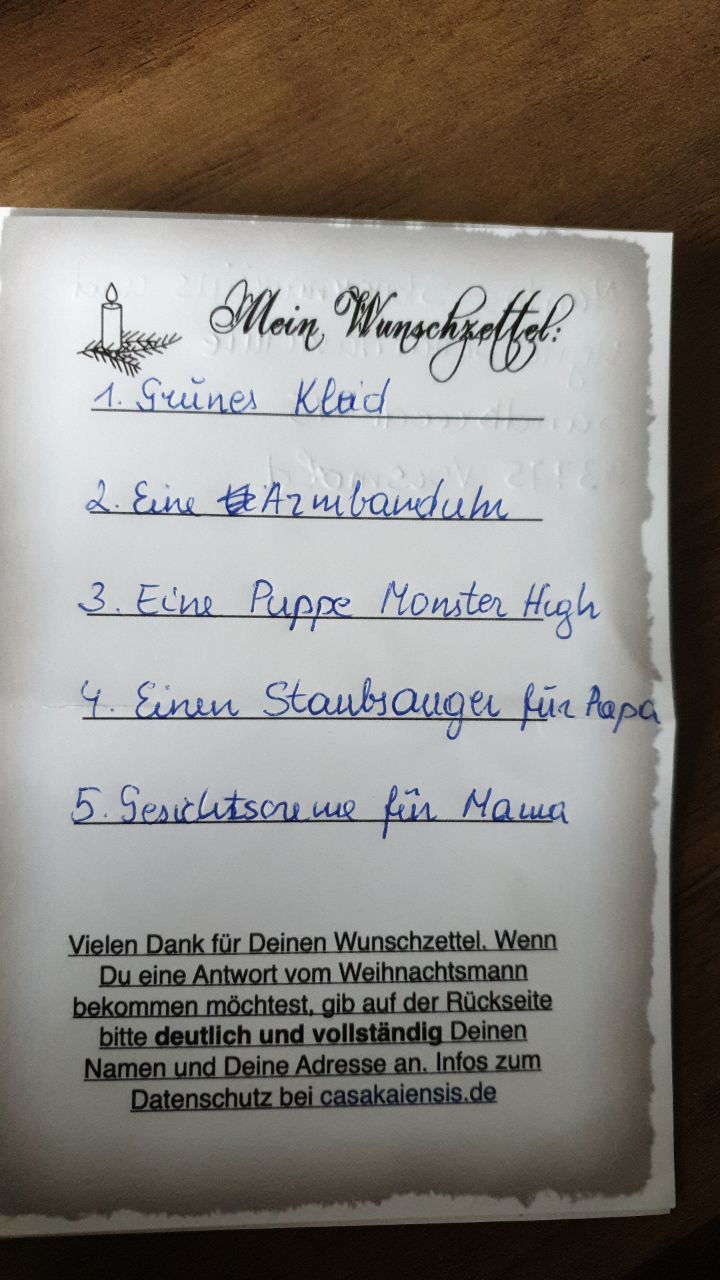 Mein Wunschzettel:
1. Grünes Kleid
2. Eine Armbanduhr
3. Eine Puppe Monster High
4. Einen Staubsauger für Papa
5. Gesichtscreme für Mama
Vielen Dank für Deinen Wunschzettel. Wenn
Du eine Antwort vom Weihnachtsmann
bekommen möchtest, gib auf der Rückseite
bitte deutlich und vollständig Deinen
Namen und Deine Adresse an. Infos zum
Datenschutz bei casakaiensis.de